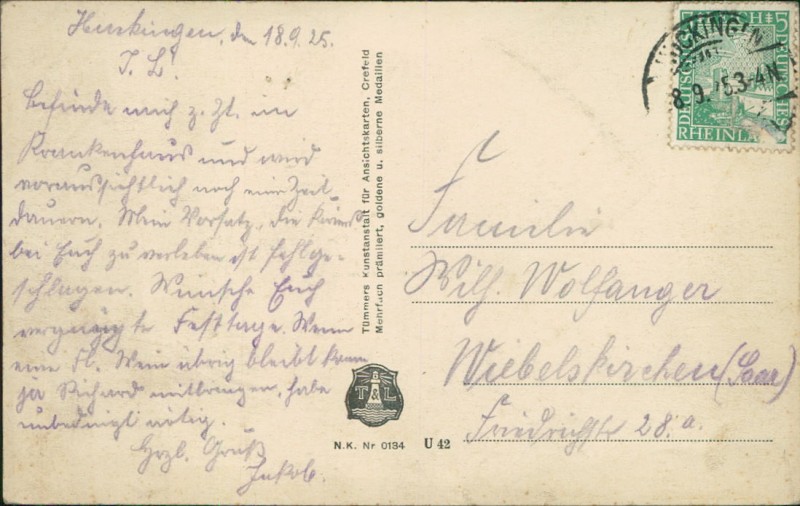 Huckingen, den 18.9.25.
I. L!
Befinde mich z. Zt. im
Krankenhaus und wird
voraussichtlich noch eine Zeit
dauern. Mein Vorsatz, die
bei Euch zu verleben ist fehlge-
schlagen. Wünsche Euch
vergnügte Festtage. Wenn
eine Fl. Wein übrig bleibt kann
ja Richard mitbringen, habe
unbedingt nötig.
Herzl. Gruß
Jakob.
Tümmers Kunstanstalt für Ansichtskarten, Crefeld
Mehrfach prämiiert, goldene u. silberne Medaillen
T & L
N.K. Nr 0134 U 42
HUCKINGEN
8.9.25.3-4N
5 DEUTSCHES
RHEINLA
Familie
Wilh. Wolfanger
Wiebelskirchen (Saar)
Friedrichstr 28.a.